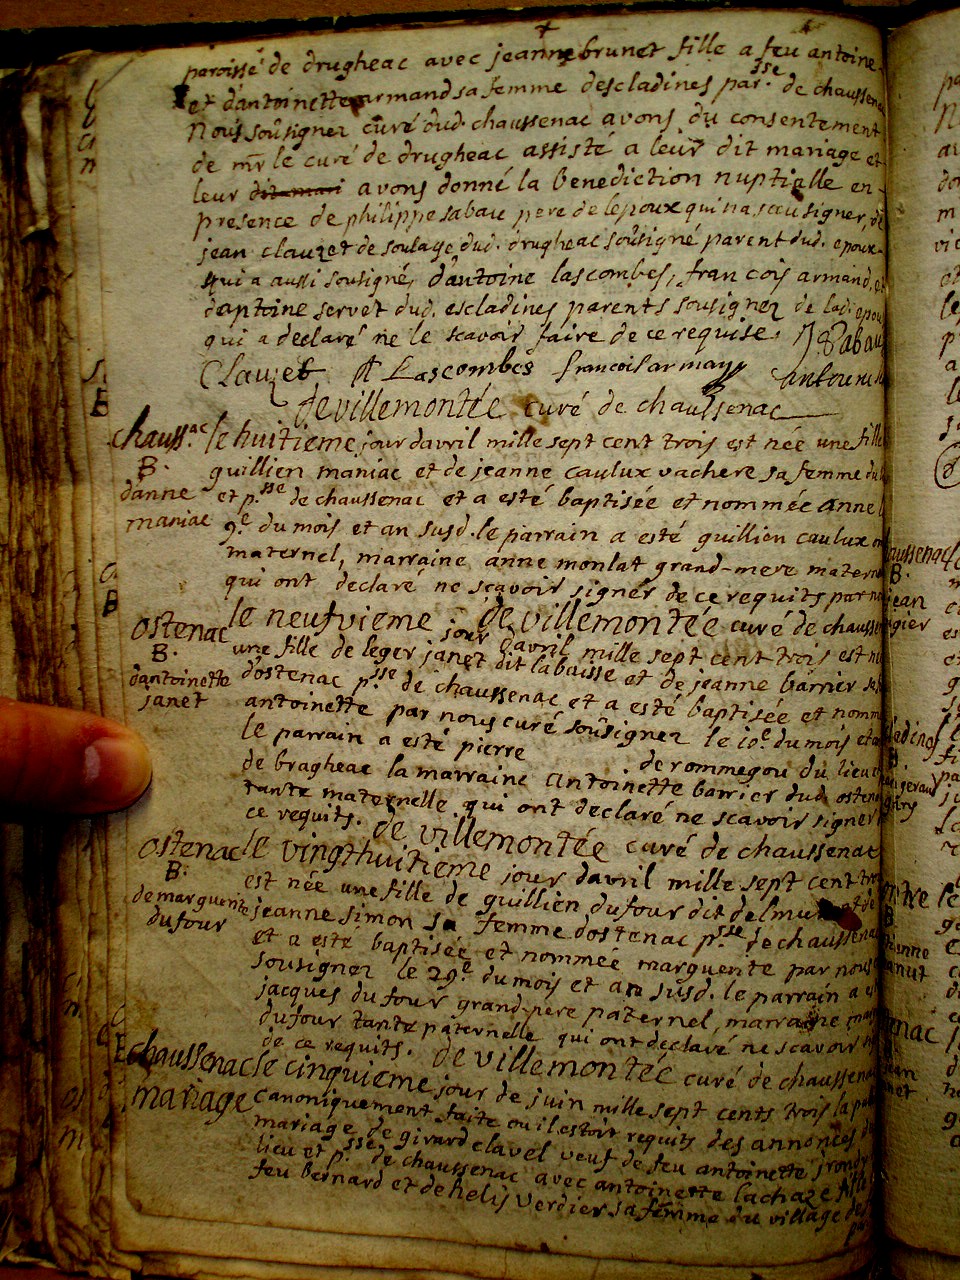 paroisse de drugheac avec jeanne brunet fille a feu antoine
et d'antoinette armand sa femme descladines par.sse de chaussenac
Nous soûsigner curé dud. chaussenac avons du consentement
de mr. le curé de drugheac assisté a leur dit mariage et
leur dit mari avons donné la benediction nuptialle en-
presence de philippe sabau pere de lepoux qui na sceu signer, de
jean clauzet de soulage dud. drugheac soûsigné parent dud. epoux
qui a aussi sousigné, d'antoine lascombes, francois armand, et
dantoine servet dud. escladines parents sousignez de lad. epou
qui a declaré ne le scavoir faire de ce requise. J Sabau
Clauzet A Lascombes francois armand antoine
de villemontée curé de chaussenac
chauss.ac le huitieme jour davril mille sept cent trois est née une fille
B. guillien maniac et de jeanne caulux vachere sa femme du
d'anne et p.sse de chaussenac et a esté baptisée et nommée anne l
maniac 9e. du mois et an susd. le parrain a esté guillien caulux on
maternel, marraine anne monlat grand-mere matern
qui ont declaré ne scavoir signér de ce requits par n
de villemontée curé de chaussen
ostenac le neufvieme jour davril mille sept cent trois est n
B. une fille de leger janet dit labaisse et de jeanne barrier sa
dantoinette dostenac p.sse de chaussenac et a esté baptisée et nomm
janet antoinette par nous curé soûsigner le 10e. du mois et a
le parrain a esté pierre de rommegou du lieu
de bragheac la marraine antoinette barrier dud. osten
tante maternelle qui ont declaré ne scavoir signer
ce requits. de villemontée curé de chaussenac
ostenac le vingthuitieme jour davril mille sept cent tro
B. est née une fille de guillien dufour dit delmu et de
de marguerite jeanne simon sa femme dostenac p.sse de chaussena
dufour et a esté baptisée et nommée marguerite par nous
sousigner le 29e. du mois et an susd. le parrain a e
jacques dufour grand-pere paternel, marraine
dufour tante paternelle qui ont declaré ne scavoir
de ce requits. de villemontée curé de chaussena
chaussenac le cinquieme jour de juin mille sept cents trois la
mariage canoniquement faite ou il estoit requits des annonces d
mariage de girard clavel veuf de feu antoinette
lieu et p.sse de chaussenac avec antoinette lachaze fille
feu bernard et de helis verdier sa femme du village de